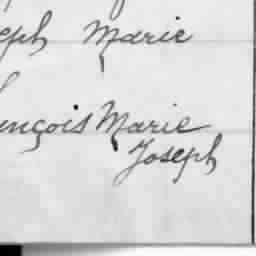 eph Marie
ençois Marie
Joseph